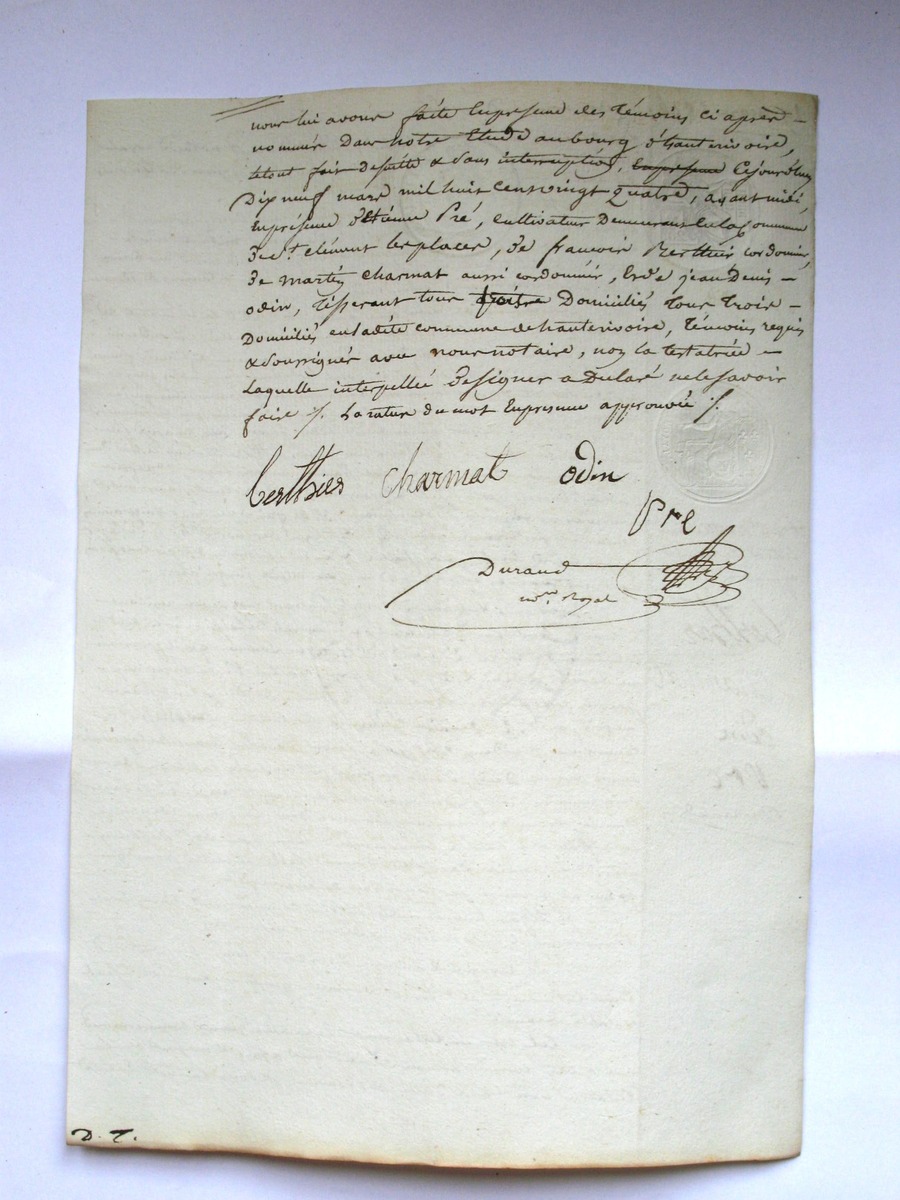 nous lui avons faite en présence des témoins ci après
nommés dans notre étude au bourg d'hauterivoire,
letout fait desuite & sans interruption, En présence Cejourd'huy
Dix neuf mars mil huit cent vingt quatre, avant midi,
en présence d'Etienne Pré, cultivateur Demeurant en la Commune
De st. clément les places, De francois Berthier cordonnier,
De martin charmat aussi cordonnier, & de jean Denis
odin, tisserant tous Domiciliés tous trois
Domiciliés en ladite commune de hauterivoire, témoins requis
& Soussignés avec nous notaire, non la testatrice
Laquelle interpellée de signer a Déclaré ne le savoir
faire /. La rature du mot En présence approuvée /.
Berthier charmat odin
Pré
Durand
nore. Royal
D. T.